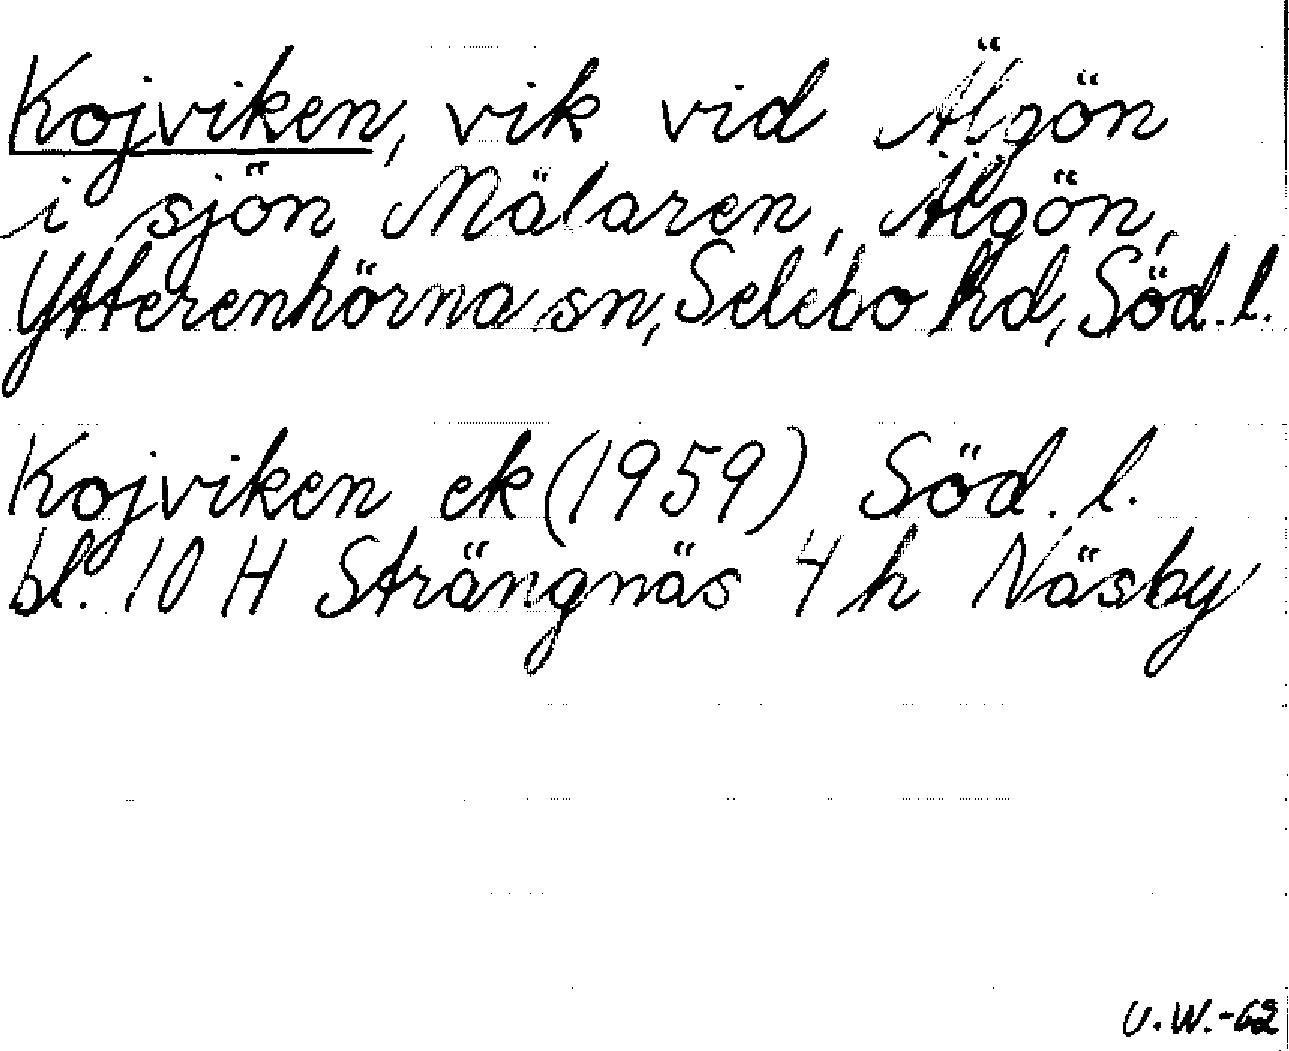 Kojviken, vik vid Älgön
i sjön Mälaren, Älgön,
Ytterenhörna sn, Selebo hd, Söd. l.
Kojviken ek (1959) Söd. l.
bl. 10 H Strängnäs 4 h Näsby
U.W.-62